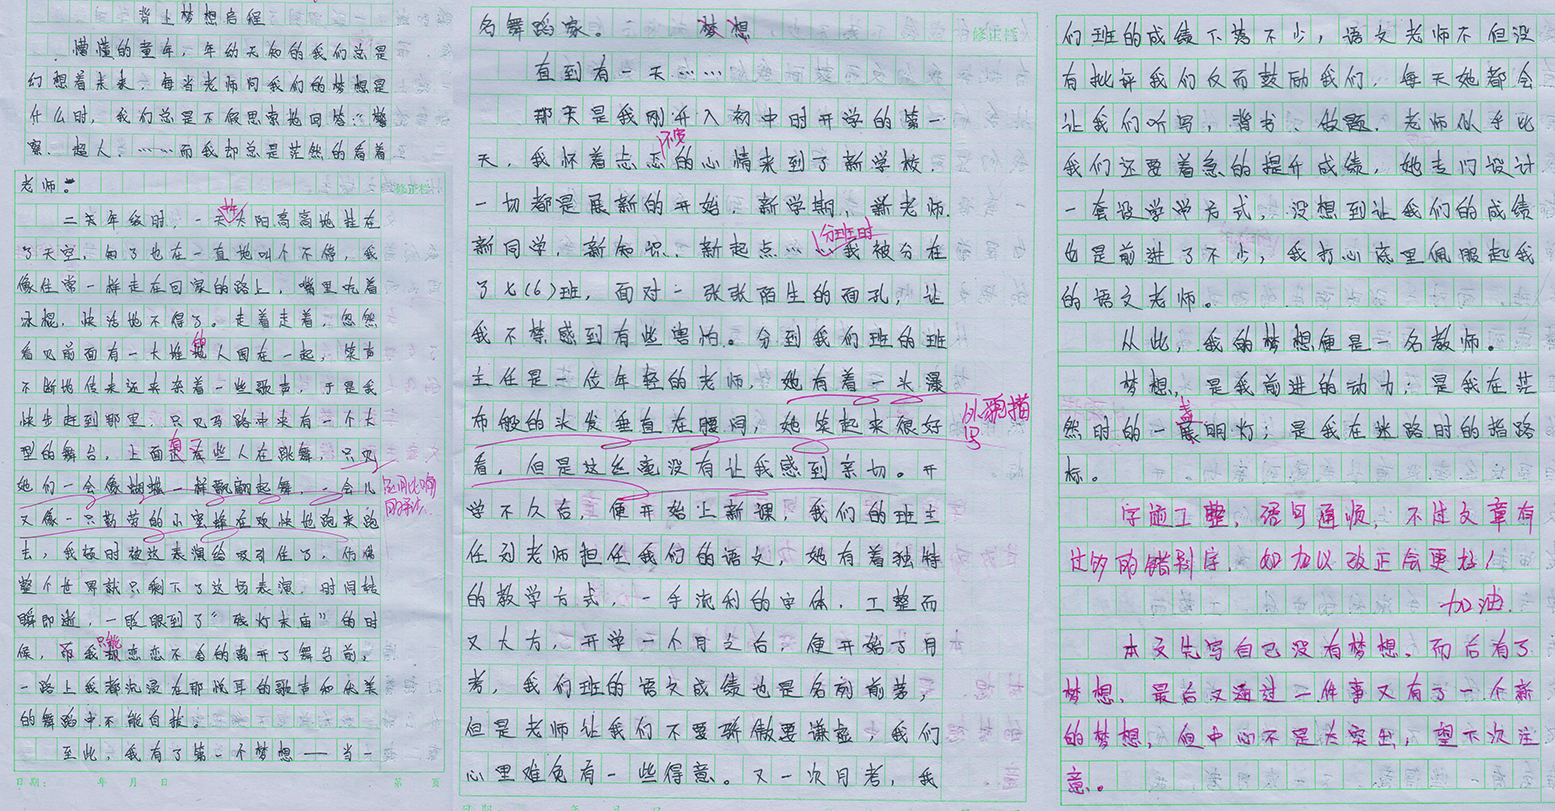 背上梦想启程
懵懂的童年，年幼无知的我们总是
幻想着未来，每当老师问我们的梦想是
什么时，我们总是不假思索地回答："警
察、超人、……而我却总是茫然的看着
老师。
二天年级时，一天太阳高高地挂在
了天空，知了也在一直地叫个不停，我
像往常一样走在回家的路上，嘴里吃着
冰棍，快活地不得了。走着走着，忽然
看见前面有一大堆的人围在一起，笑声
不断地传来还夹杂着一些歌声，于是我
快步赶到那里，只见马路中央有一个大
型的舞台，上面有些人在跳舞，只见
她们一会像蝴蝶一样翩翩起舞，一会儿
又像一只勤劳的小蜜蜂在欢快地跑来跑
去，我顿时被这表演给吸引住了，仿佛
整个世界就只剩下了这场表演，时间转
瞬即逝，一眨眼到了"残灯末庙"的时
候，而我只能恋恋不舍的离开了舞台前，
一路上我都沉浸在那悦耳的歌声和优美
的舞蹈中不能自拔。
至此，我有了第一个梦想——当一
运用比喻
日期： 年 月 日 第 页
名舞蹈家。 梦想
直到有一天……
那天是我刚升入初中时开学的第一
天，我怀着忐忑的心情来到了新学校，
一切都是展新的开始，新学期、新老师、
新同学，新知识、新起点…… 我被分在
分班时
了七(6)班，面对一张张陌生的面孔，让
我不禁感到有些害怕。分到我们班的班
主任是一位年轻的老师，她有着一头瀑
布般的头发垂直在腰间，她笑起来很好
外貌描写
看，但是这丝毫没有让我感到亲切。开
学不久后，便开始上新课，我们的班主
任刘老师担任我们的语文，她有着独特
的教学方式，一手流利的字体，工整而
又大方，开学一个月之后，便开始了月
考，我们班的语文成绩也是名列前茅，
但是老师让我们不要骄傲要谦虚，我们
心里难免有一些得意。又一次月考，我
们班的成绩下落不少，语文老师不但没
有批评我们反而鼓励我们，每天她都会
让我们听写，背书、做题，老师似乎比
我们还要着急的提升成绩，她专门设计
一套设学学方式，没想到让我们的成绩
也是前进了不少，我打心底里佩服起我
的语文老师。
从此，我的梦想便是一名教师。
梦想，是我前进的动力；是我在茫
然时的一盏明灯；是我在迷路时的指路
标。
字迹工整，语句通顺，不过文章有
过多的错别字，如加以改正会更好！
加油
本文先写自己没有梦想，而后有了
梦想，最后又通过一件事又有了一个新
的梦想，但中心不是太突出，望下次注
意。